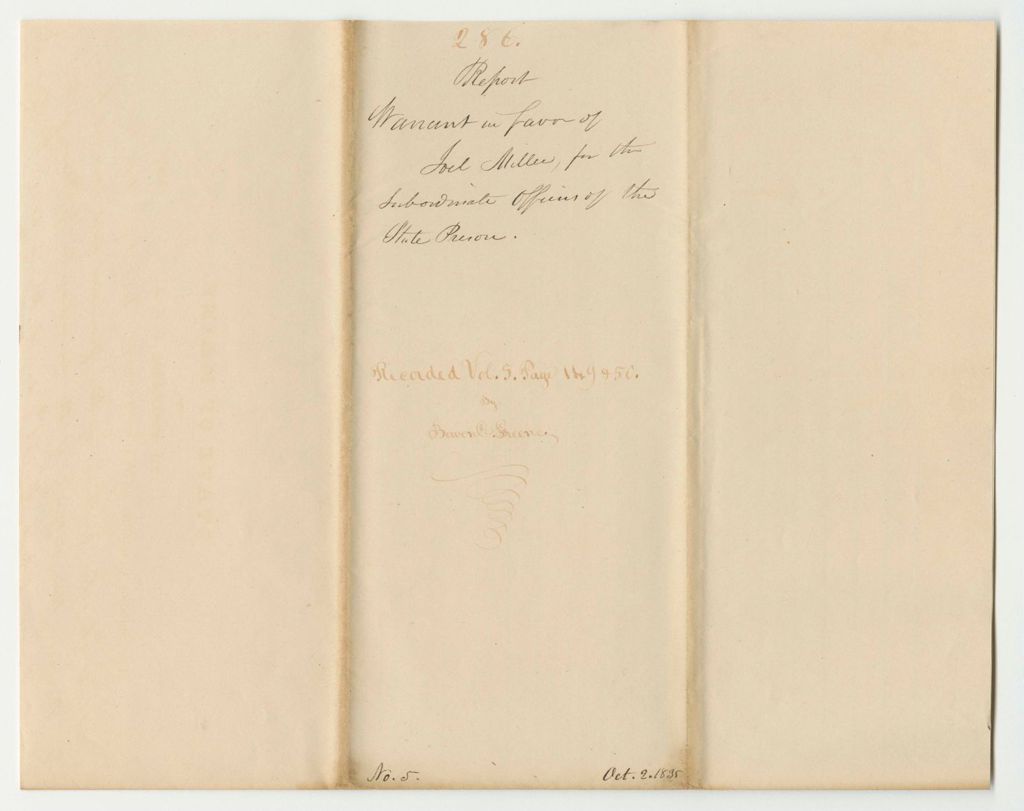 286.
Report
Warrant in favor of
Joel Miller, for the
Subordinate Officers of the
State Prison.
Recorded Vol. 5. Page 149 & 50.
By
Greene
No. 5.
Oct. 2. 1835